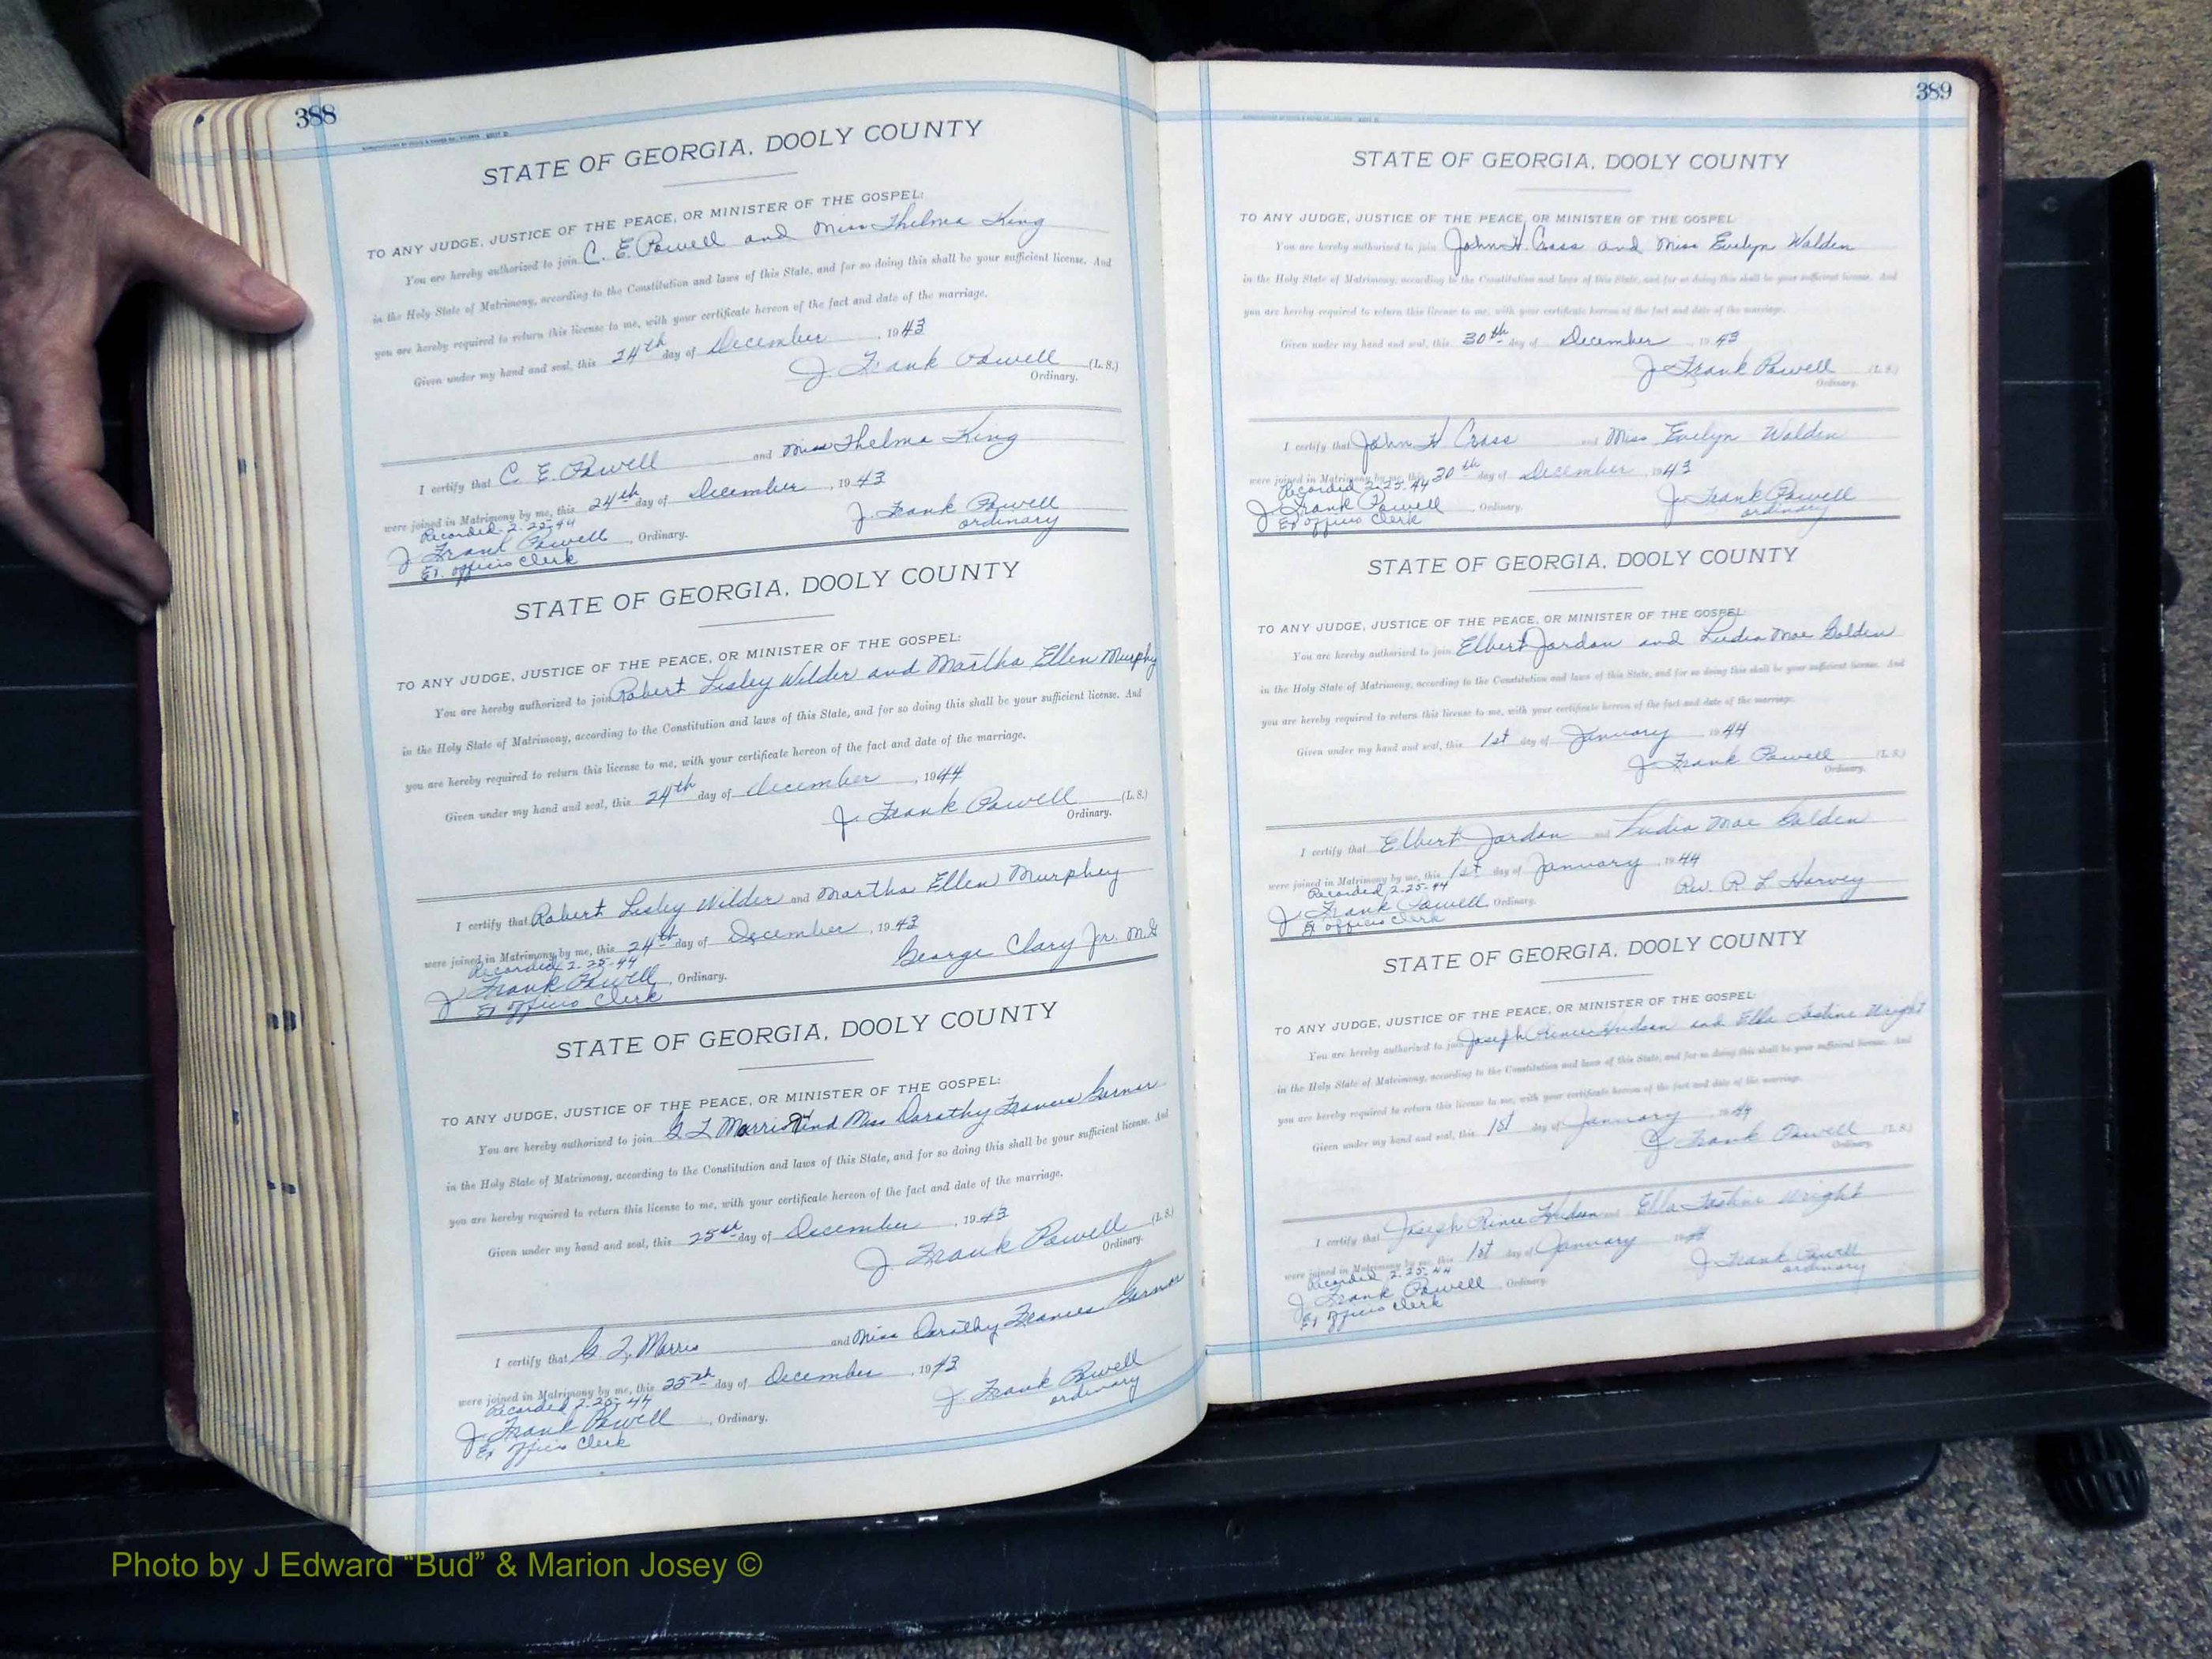 388
STATE OF GEORGIA, DOOLY COUNTY
TO ANY JUDGE, JUSTICE OF THE PEACE, OR MINISTER OF THE GOSPEL:
You are hereby authorized to join C. E. Powell and Miss Thelma King
in the Holy State of Matrimony, according to the Constitution and laws of this State, and for so doing this shall be your sufficient license. And
you are hereby required to return this license to me, with your certificate hereon of the fact and date of the marriage.
Given under my hand and seal, this 24th day of December, 1943
J. Frank Powell (L. S.)
Ordinary.
I certify that C. E. Powell and Miss Thelma King
were joined in Matrimony by me, this 24th day of December, 1943
Recorded 2-25-44
J. Frank Powell
ordinary
J Frank Powell, Ordinary.
Ex officio Clerk
STATE OF GEORGIA, DOOLY COUNTY
TO ANY JUDGE, JUSTICE OF THE PEACE, OR MINISTER OF THE GOSPEL:
You are hereby authorized to join Robert Lesley Wilder and Martha Ellen Murphy
in the Holy State of Matrimony, according to the Constitution and laws of this State, and for so doing this shall be your sufficient license. And
you are hereby required to return this license to me, with your certificate hereon of the fact and date of the marriage.
Given under my hand and seal, this 24th day of December, 1944
J. Frank Powell (L. S.)
Ordinary.
I certify that Robert Lesley Wilder and Martha Ellen Murphey
were joined in Matrimony by me, this 24th day of December, 1943
Recorded 2-25-44
George Clary Jr. M.G
J Frank Powell, Ordinary.
Ex officio Clerk
STATE OF GEORGIA, DOOLY COUNTY
TO ANY JUDGE, JUSTICE OF THE PEACE, OR MINISTER OF THE GOSPEL:
You are hereby authorized to join G. L Morris and Miss Dorothy Frances
in the Holy State of Matrimony, according to the Constitution and laws of this State, and for so doing this shall be your sufficient license. And
you are hereby required to return this license to me, with your certificate hereon of the fact and date of the marriage.
Given under my hand and seal, this 25th day of December, 1943
J. Frank Powell (L. S.)
Ordinary.
I certify that G. L. Morris and Miss Dorothy Frances
were joined in Matrimony by me, this 25th day of December, 1943
Recorded 2-25-44
J. Frank Powell
ordinary
J Frank Powell, Ordinary.
Ex officio Clerk
389
STATE OF GEORGIA, DOOLY COUNTY
TO ANY JUDGE, JUSTICE OF THE PEACE, OR MINISTER OF THE GOSPEL:
You are hereby authorized to join John H. Cross and Miss Evelyn Walden
in the Holy State of Matrimony, according to the Constitution and laws of this State, and for so doing this shall be your sufficient license. And
you are hereby required to return this license to me, with your certificate hereon of the fact and date of the marriage.
Given under my hand and seal, this 30th day of December, 1943
J Frank Powell (L. S.)
Ordinary.
I certify that John H Cross and Miss Evelyn Walden
were joined in Matrimony by me, this 30th day of December, 1943
Recorded 2-25-44
J. Frank Powell
ordinary
J Frank Powell, Ordinary.
Ex officio Clerk
STATE OF GEORGIA, DOOLY COUNTY
TO ANY JUDGE, JUSTICE OF THE PEACE, OR MINISTER OF THE GOSPEL:
You are hereby authorized to join Elbert Jordan and Ludia Mae Golden
in the Holy State of Matrimony, according to the Constitution and laws of this State, and for so doing this shall be your sufficient license. And
you are hereby required to return this license to me, with your certificate hereon of the fact and date of the marriage.
Given under my hand and seal, this 1st day of January, 1944
J Frank Powell (L. S.)
Ordinary.
I certify that Elbert Jordan and Ludia Mae Golden
were joined in Matrimony by me, this 1st day of January, 1944
Recorded 2-25-44
Rev. R. L. Harvey
J. Frank Powell, Ordinary.
Ex officio Clerk
STATE OF GEORGIA, DOOLY COUNTY
TO ANY JUDGE, JUSTICE OF THE PEACE, OR MINISTER OF THE GOSPEL:
You are hereby authorized to join Joseph Prince Hudson and Ella Wright
in the Holy State of Matrimony, according to the Constitution and laws of this State, and for so doing this shall be your sufficient license. And
you are hereby required to return this license to me, with your certificate hereon of the fact and date of the marriage.
Given under my hand and seal, this 1st day of January, 1944
J Frank Powell (L. S.)
Ordinary.
I certify that Joseph Prince Hudson and Ella Wright
were joined in Matrimony by me, this 1st day of January 1944
Recorded 2-25-44
J Frank Powell
ordinary
J Frank Powell, Ordinary.
Ex officio Clerk
Photo by J Edward “Bud” & Marion Josey ©